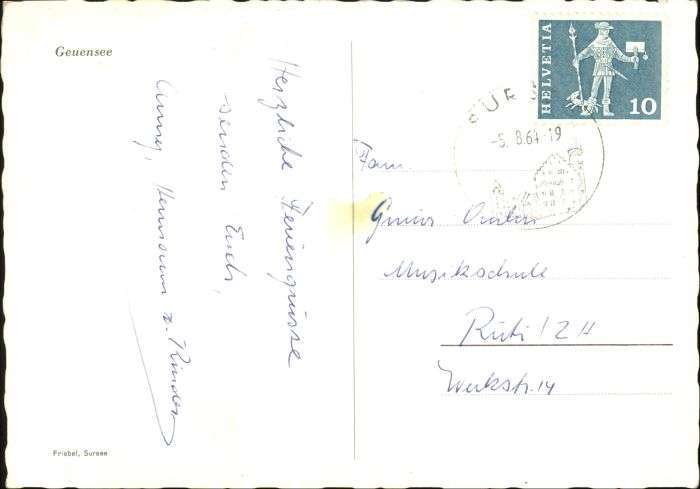 Geuensee
Herzliche Feriengrüsse
senden Euch,
Hermann u. Kinder
HELVETIA
10
SUR
-5. 8.64-19
Fam.
Musikschule
Rüti / ZH
Werkstr. 14
Friebel, Sursee